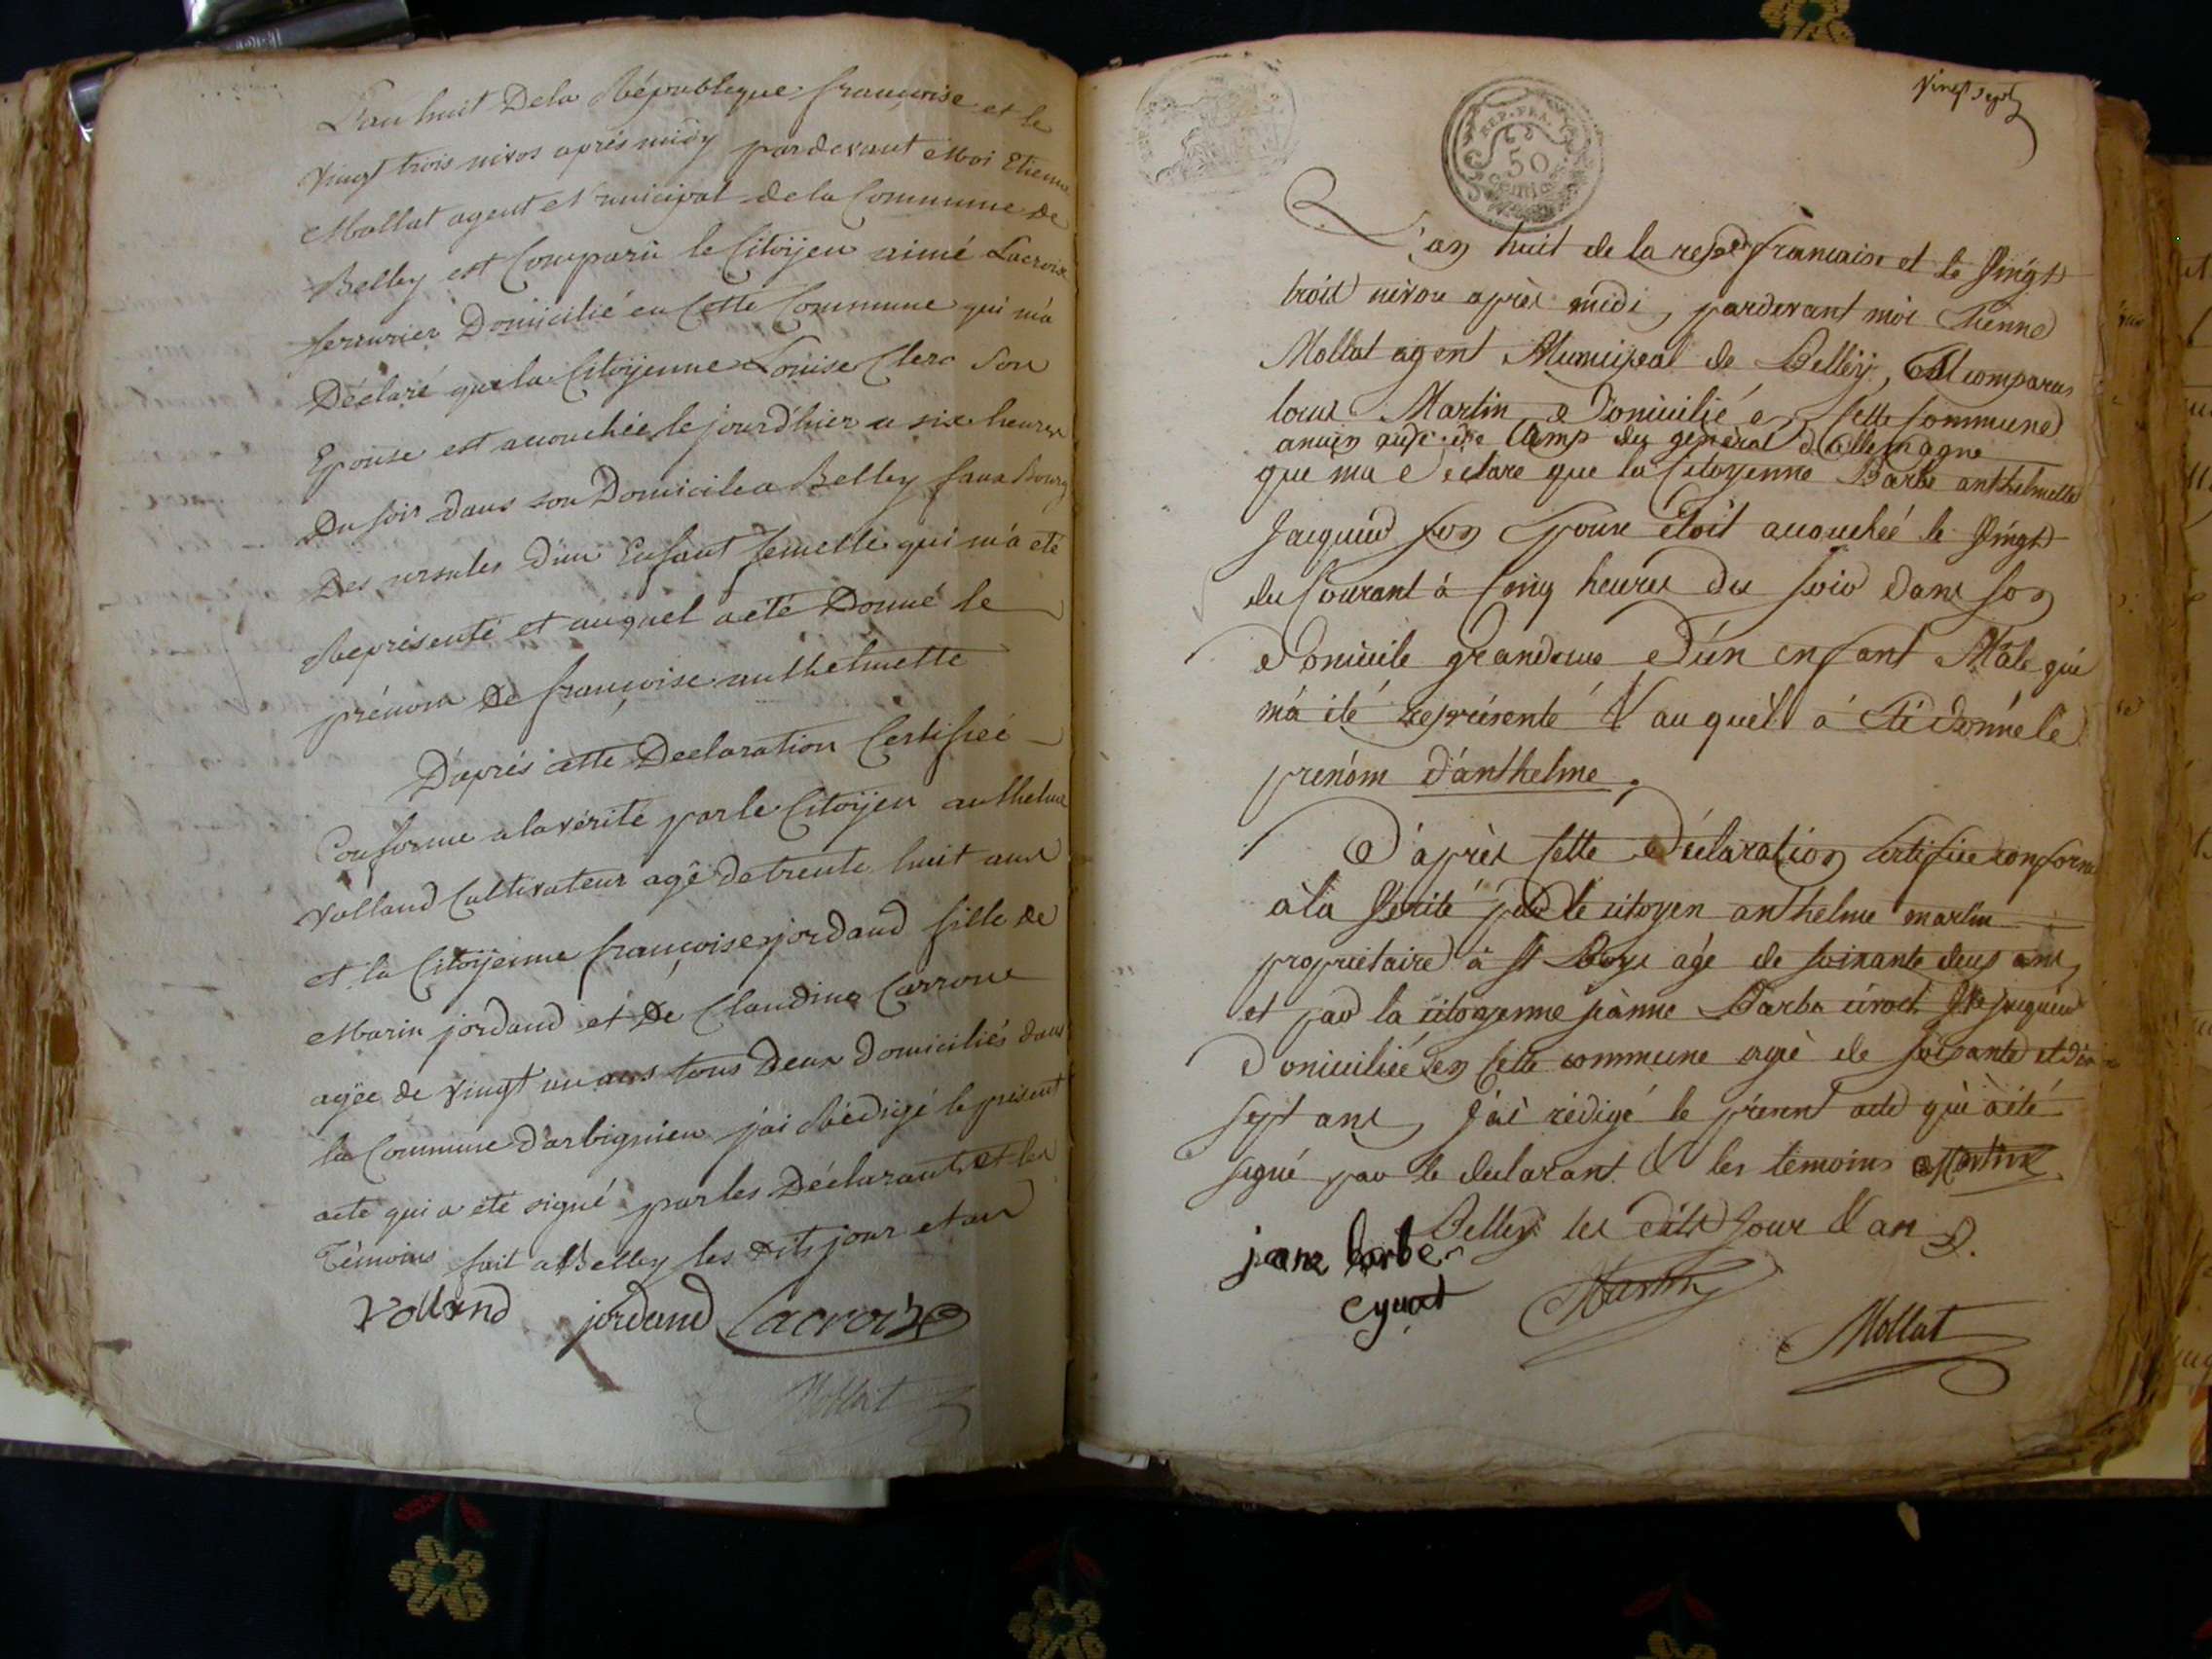 L'an huit Dela République francoise et le
Vingt trois nivos après midy pardevant Moi Etienne
Mollat agent Municipal de la Commune de
Belley est Comparu le Citöyen aimé Lacroix
serrurier Domicilié en Cette Commune qui m'a
Déclaré que la Citöyenne Louise Clerc Son
Epouse est acouchée le jourd'hier a six heures
Du soir dans son Domicile a Belley faux Bourg
Des ursules d'un Enfant femelle qui m'a eté
Représenté et auquel a été Donné le
prénom De françoise anthelmette
D'après cette Declaration Certifieé
Conforme a la vérité par le Citöyen anthelme
Volland Cultivateur agé de trente huit ans
et la Citöyenne françoise jordand fille de
Marin jordand et De Claudine Carrone
agée de vingt un ans tous Deux domiciliés dans
la Commune d'arbignieu j'ai Rédigé le présent
acte qui a eté signé par les Déclarants et les
Témoins fait a Belley les dits jour et an
Volland jordand Lacroix
Mollat
vingt sept
REP. FRA.
50
centimes
L'an huit de la repe francaise et le Vingt
trois nivose après midi, pardevant moi Etienne
Mollat agent Municipal de Belleÿ, Est comparus
Louis Martin Domicilié en Cette Commune
ancien aide de Camp du general Dallemagne
que ma Declare que la Citoyenne Barbe anthelmette
Jaquin son Epouse étoit acouchéé le Vingt
du Courant à Cinq heures du soir dans son
Domicile grande rue D'un enfant Mâle qui
m'a été représenté & au quel a été donné le
prenom d'anthelme.
D'après Cette Déclaration Certifiée conforme
à la Verité par le citoyen anthelme martin
propriétaire à St Boys agé de soixante deux ans
et par la citoyenne jeanne Barbe Ve jaquin
Domiciliée en Cette commune agée de soixante et dix
sept ans, J'ai rédigé le présent acte qui à été
signé par le declarant & les temoins Martin
Belley les dits Jour & an
jeane barbe
Martin
Mollat